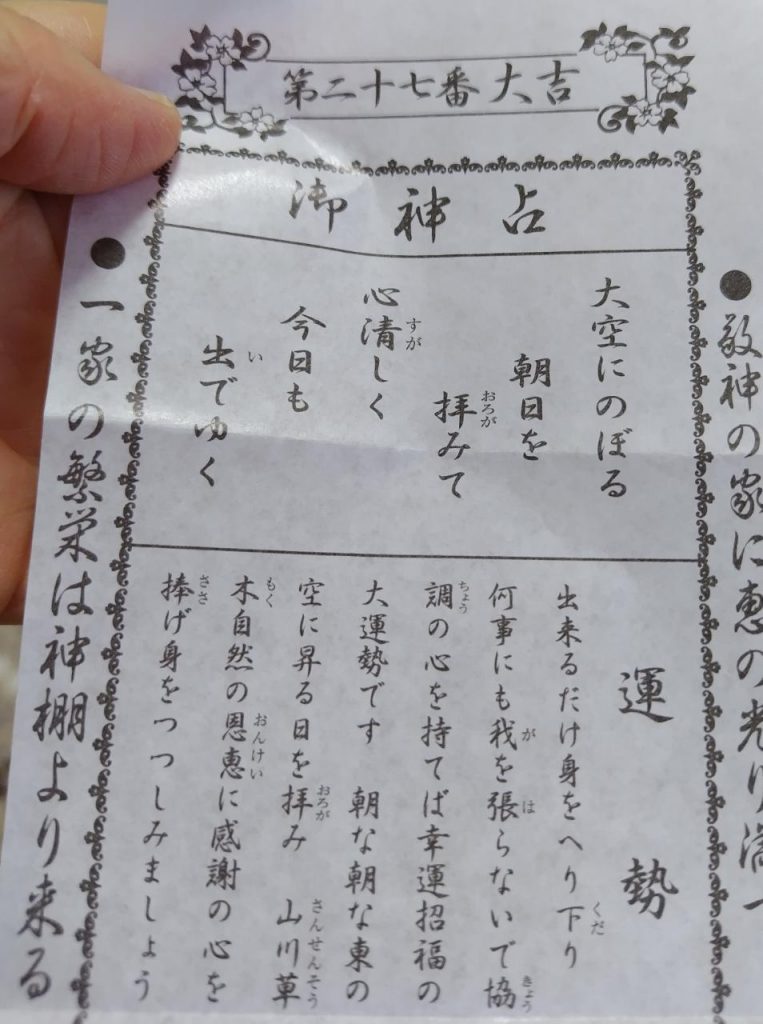 第二十七番 大吉
御神占
●敬神の家に恵の光り満つ
大空にのぼる
朝日を
拝みて
おろが
心清しく
すが
今日も
出でゆく
い
運勢
出来るだけ身をへり下り
くだ
何事にも我を張らないで協
が は きょう
調の心を持てば幸運招福の
ちょう
大運勢です 朝な朝な東の
空に昇る日を拝み 山川草
おろが さんせんそう
木自然の恩恵に感謝の心を
もく おんけい
捧げ身をつつしみましょう
ささ
●一家の繁栄は神棚より来る